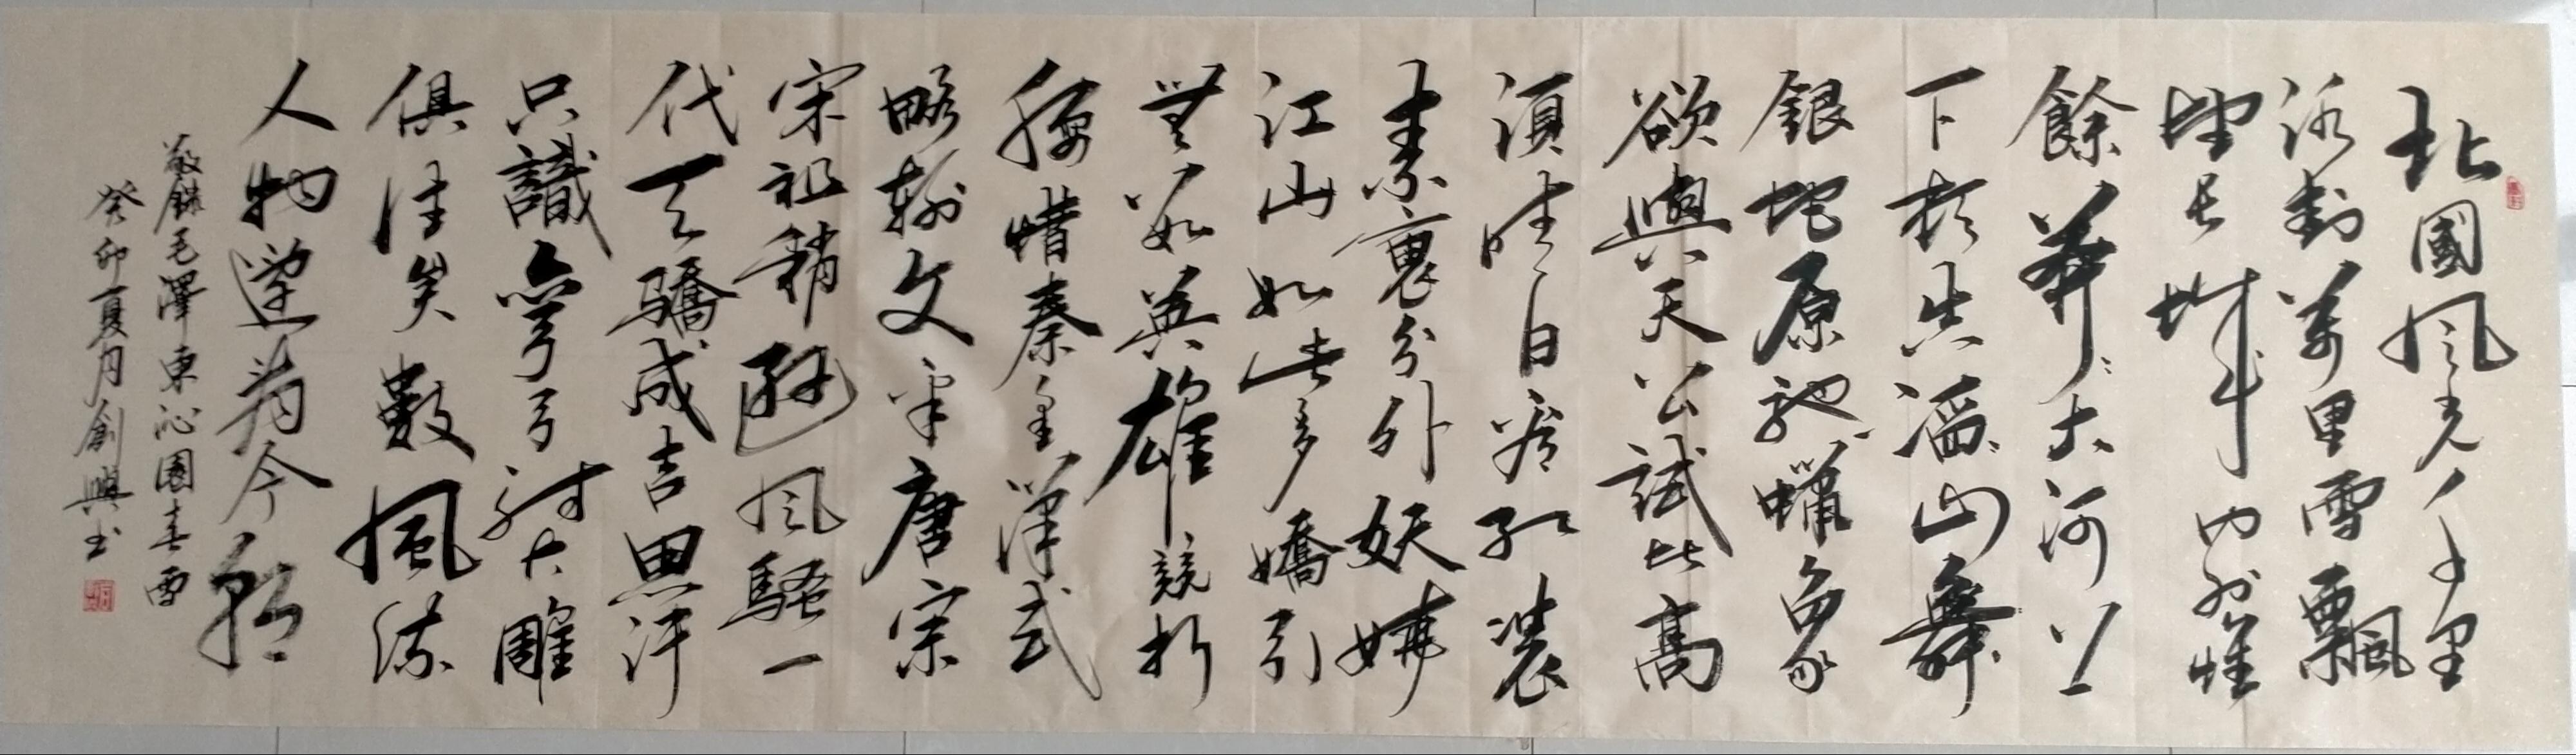 北國風光千里
冰封萬里雪飄
望長城内外惟
餘莽〻大河上
下頓失滔〻山舞
銀蛇原馳蠟象
欲與天公試比高
須晴日看紅裝
素裹分外妖嬈
江山如此多嬌引
無數英雄競折
腰惜秦皇漢武
略輸文采唐宗
宋祖稍遜風騷一
代天驕成吉思汗
只識彎弓射大雕
俱往矣數風流
人物還看今朝
敬錄毛澤東沁園春雪
癸卯夏月創興书